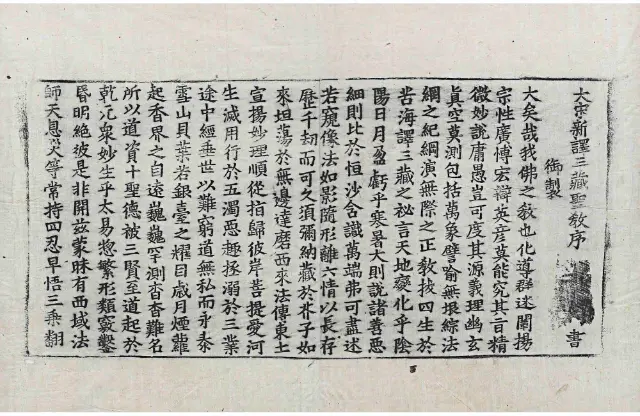 大宋新譯三藏聖教序
御製
書
大矣哉我佛之教也化導群迷闡揚
宗性廣博宏辯英彥莫能究其旨精
微妙說庸愚豈可度其源義理幽玄
真空莫測包括萬象譬喻無垠綜法
綱之紀綱演無際之正教拔四生於
苦海譯三藏之祕言天地變化乎陰
陽日月盈虧乎寒暑大則說諸善惡
細則比於恒沙含識萬端弗可盡述
若窺像法如影隨形離六情以長存
歷千劫而可久須彌納藏於芥子如
來坦蕩於無邊達磨西來法傳東土
宣揚妙理順從指歸彼岸菩提愛河
生滅用行於五濁惡趣拯溺於三業
途中經垂世以難窮道無私而永泰
雪山貝葉若銀臺之耀目歲月煙蘿
起香界之自遠巍巍罕測杳杳難名
所以道資十聖德被三賢至道起於
乾元眾妙生乎太易惣繁形類竅鑿
昏明絕彼是非開茲蒙昧有西域法
師天息災等常持四忍早悟三乘翻